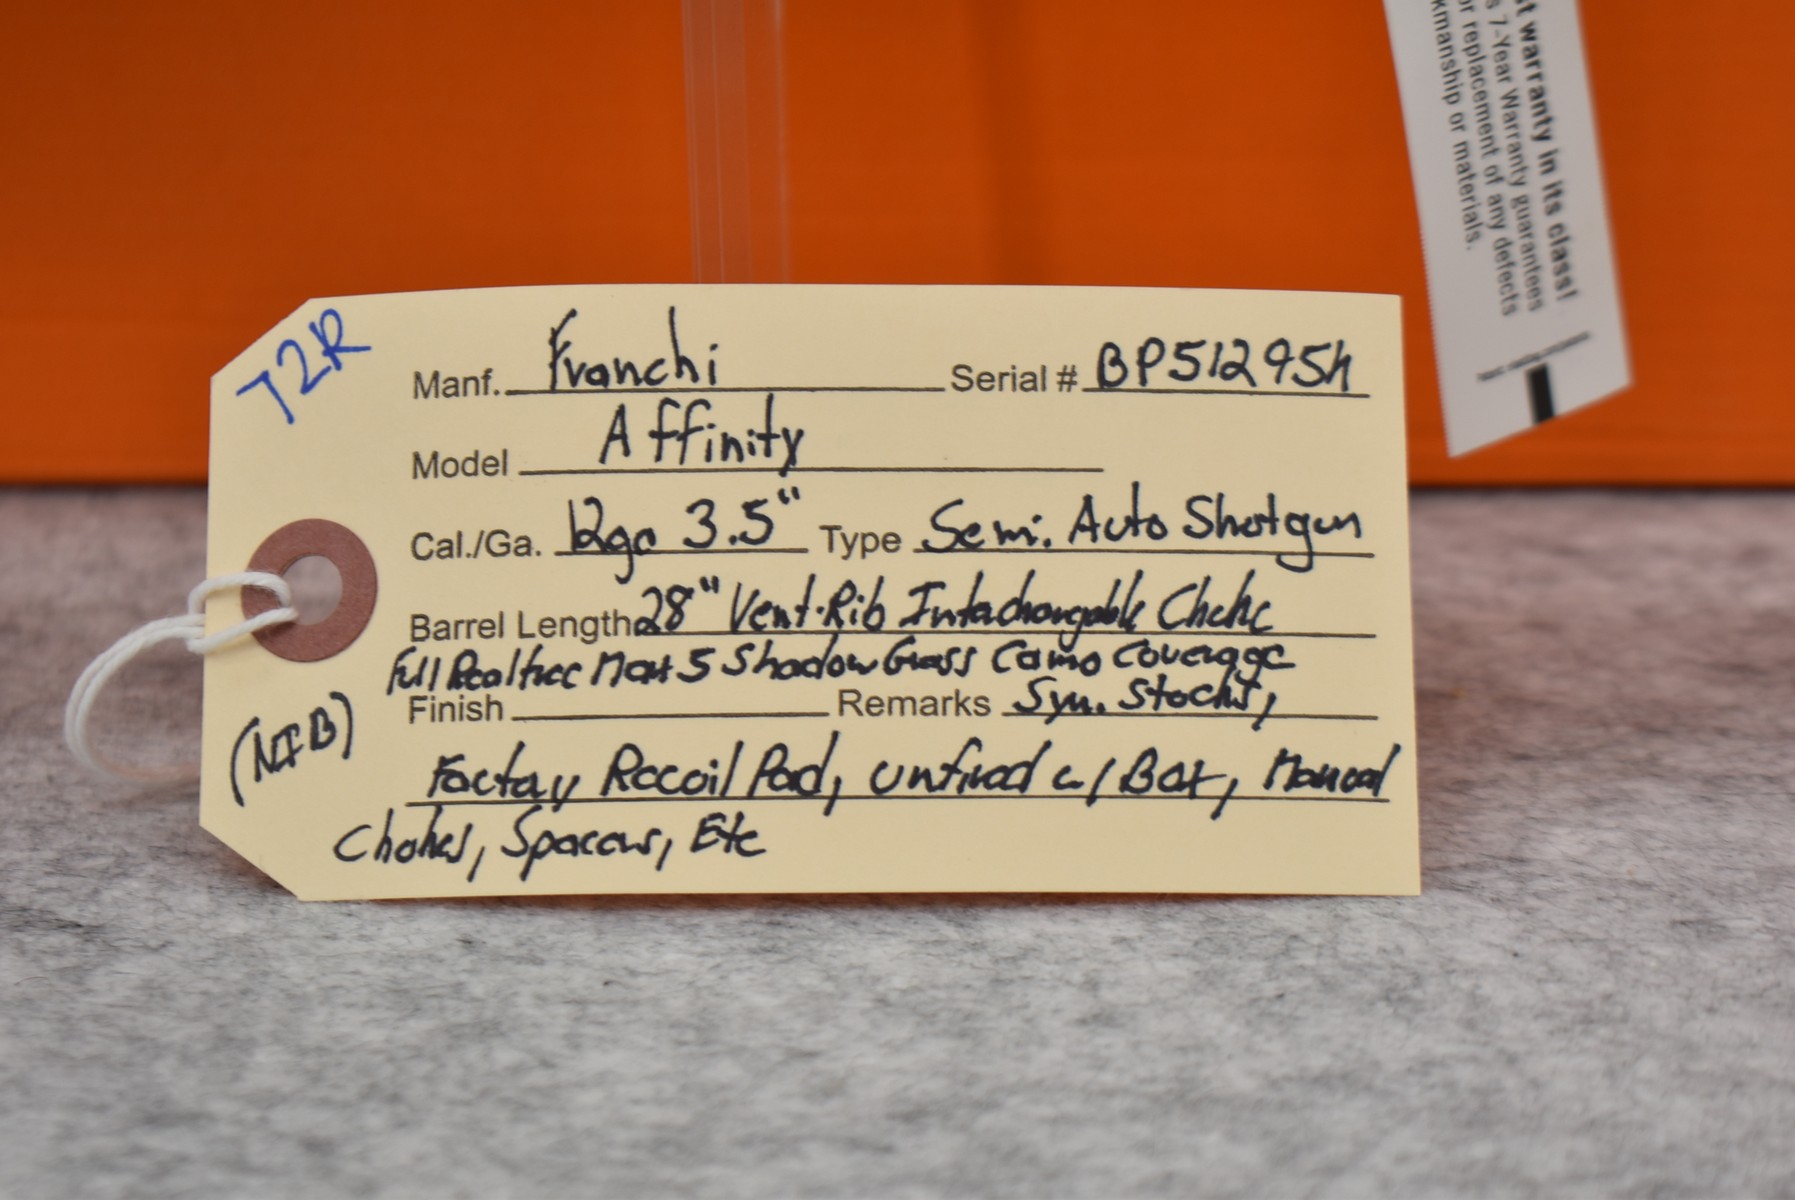 t warranty in its class!
s 7-Year Warranty guarantees
or replacement of any defects
kmanship or materials.
T2R
Manf. Franchi Serial # BP51295h
Model Affinity
Cal./Ga. 12ga 3.5" Type Semi. Auto Shotgun
Barrel Length 28" Vent-Rib Interchangable Choke
Full Realtree Max 5 Shadow Grass Camo Coverage
Finish Remarks Syn. Stocks,
(NIB)
Factory Recoil Pad, unfired w/ Box, Manual
Chokes, Spacers, Etc